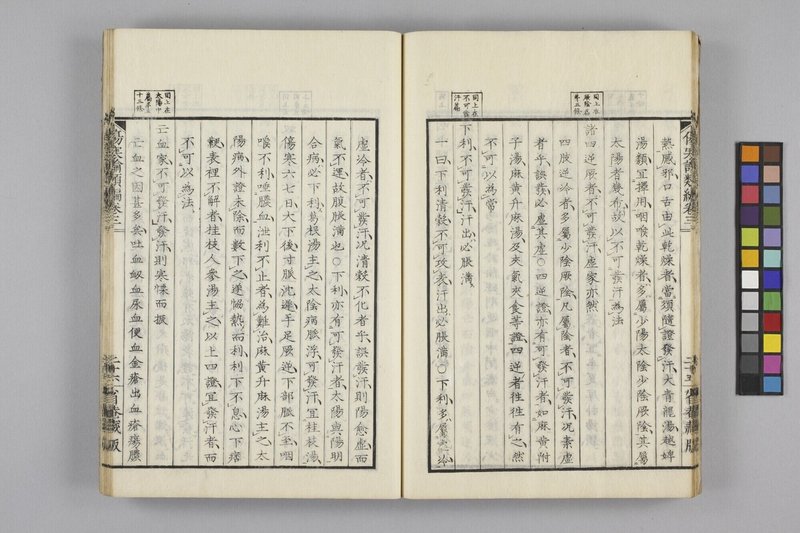 熱感邪口舌由此乾燥者當須隨證發汗大青龍湯越婢
湯類宜擇用咽喉乾燥者多屬少陽太陰少陰厥陰其屬
太陽者幾希故以不可發汗為法
諸四逆厥者不可發汗虛家亦然
四肢逆冷者多屬少陰厥陰凡屬陰者不可發汗况素虛
者乎誤發必虛其虛○四逆證亦有可發汗者如麻黄附
子湯麻黄升麻湯及夾氣夾食等證四逆者往往有之然
不可以為常
下利不可發汗汗出必脹滿
一曰下利清穀不可攻表汗出必脹滿○下利多屬虛冷
同上在厥陰篇第五條
同上在不可發汗篇
傷寒論類編卷三
虛冷者不可發汗况清穀不化者乎誤發汗則陽愈虛而
氣不運故腹脹滿也○下利亦有可發汗者太陽與陽明
合病必下利葛根湯主之太陰病脈浮可發汗宜桂枝湯
傷寒六七日大下後寸脈沈遲手足厥逆下部脈不至咽
喉不利唾膿血泄利不止者為難治麻黄升麻湯主之太
陽病外證未除而數下之遂恊熱而利利下不息心下痞
鞕表裡不解者桂枝人參湯主之以上四證宜發汗者而
不可以為法
亡血家不可發汗發汗則寒慄而振
亡血之因甚多矣吐血衄血尿血便血金瘡出血瘡瘍膿
同上在太陽中篇第五十三條
傷寒論類編卷三